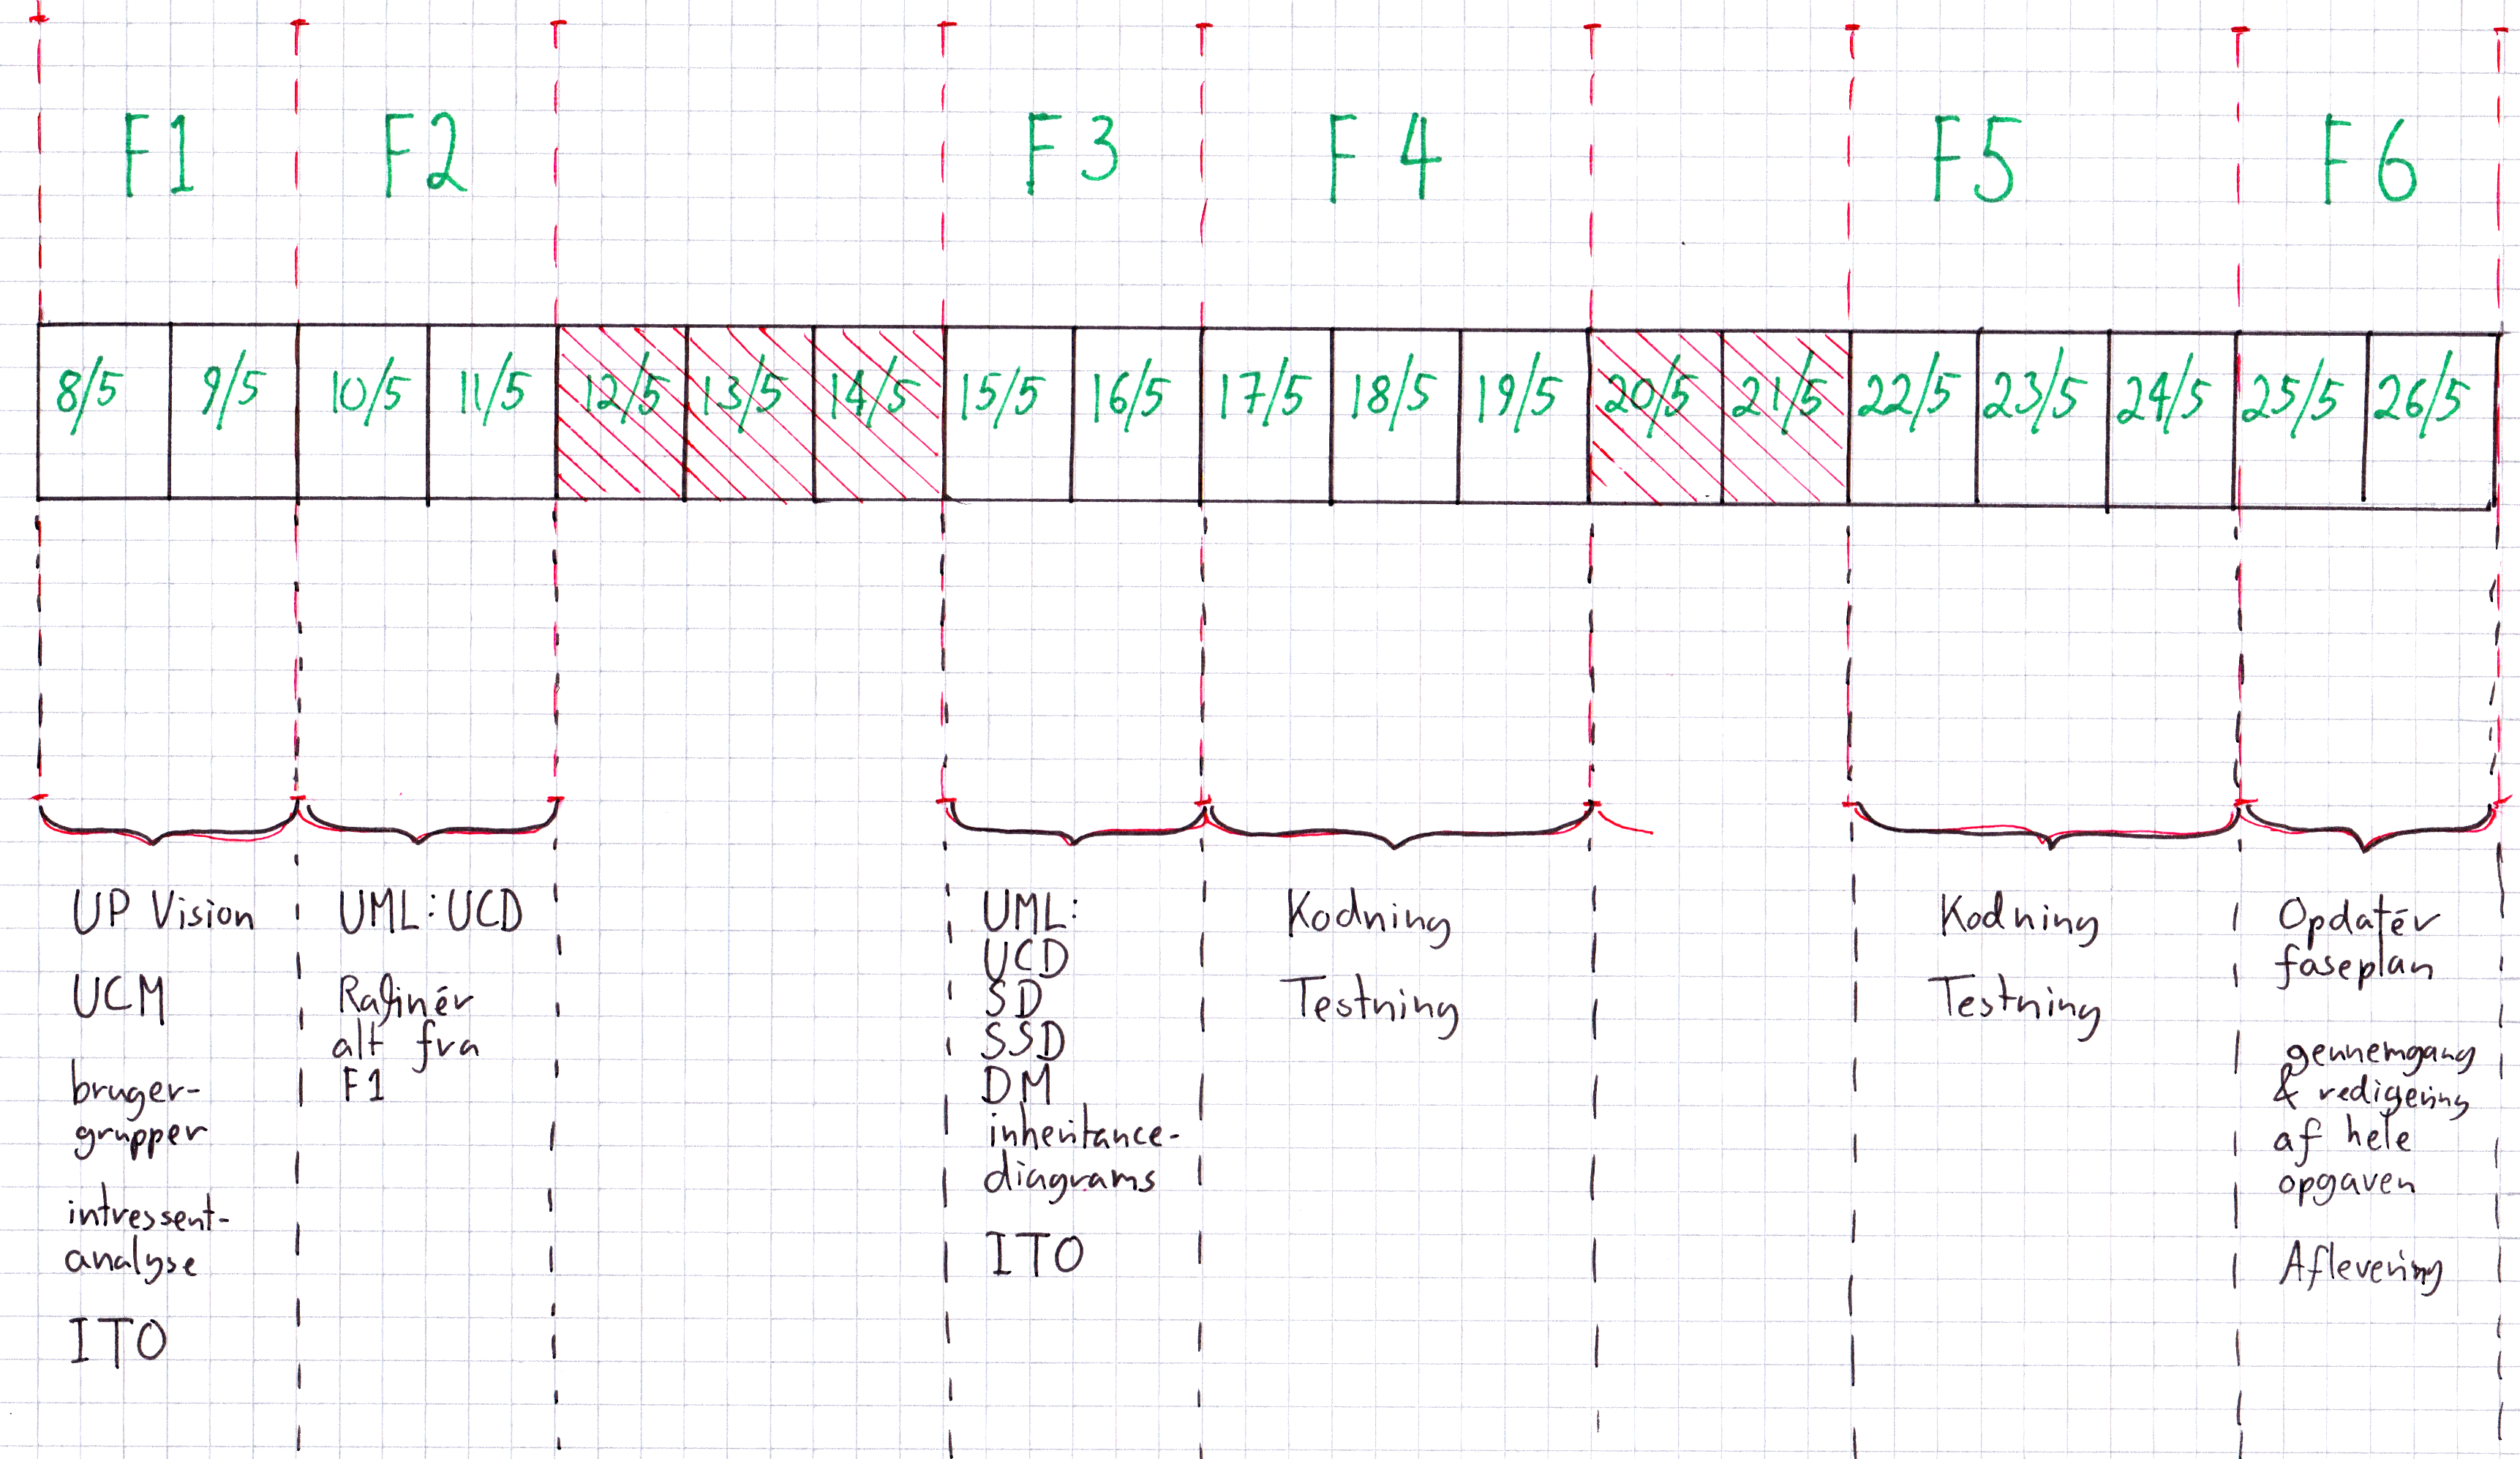 F1 F2 F3 F4 F5 F6
8/5 9/5 10/5 11/5 12/5 13/5 14/5 15/5 16/5 17/5 18/5 19/5 20/5 21/5 22/5 23/5 24/5 25/5 26/5
UP Vision
UCM
bruger-
grupper
intressent-
analyse
ITO
UML: UCD
Rafinér
alt fra
F1
UML:
UCD
SD
SSD
DM
inheritance-
diagrams
ITO
Kodning
Testning
Kodning
Testning
Opdatér
faseplan
gennemgang
& redigering
af hele
opgaven
Aflevering